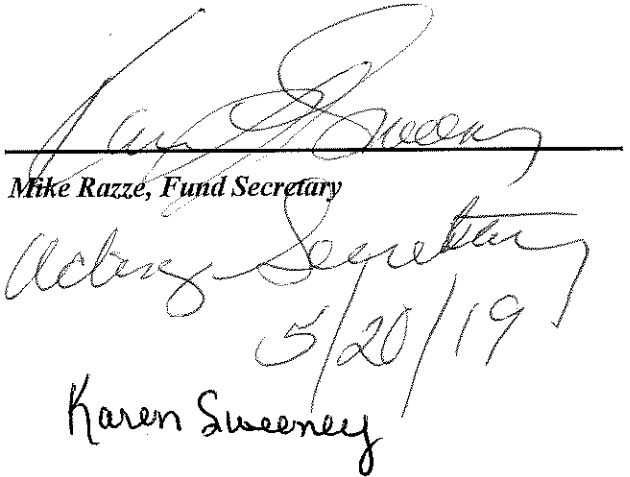 Karen Sweeney
Mike Razze, Fund Secretary
Acting Secretary
5/20/19
Karen Sweeney